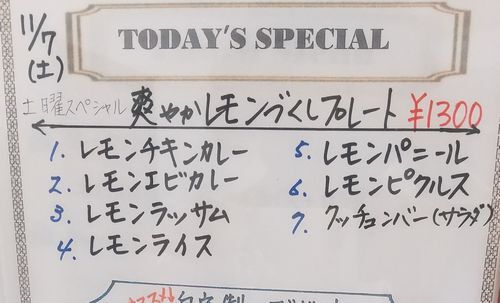 11/7
(土)
TODAY'S SPECIAL
土曜スペシャル 爽やかレモンづくしプレート ¥1300
1. レモンチキンカレー
2. レモンエビカレー
3. レモンラッサム
4. レモンライス
5. レモンパニール
6. レモンピクルス
7. クッチュンバー(サラダ)